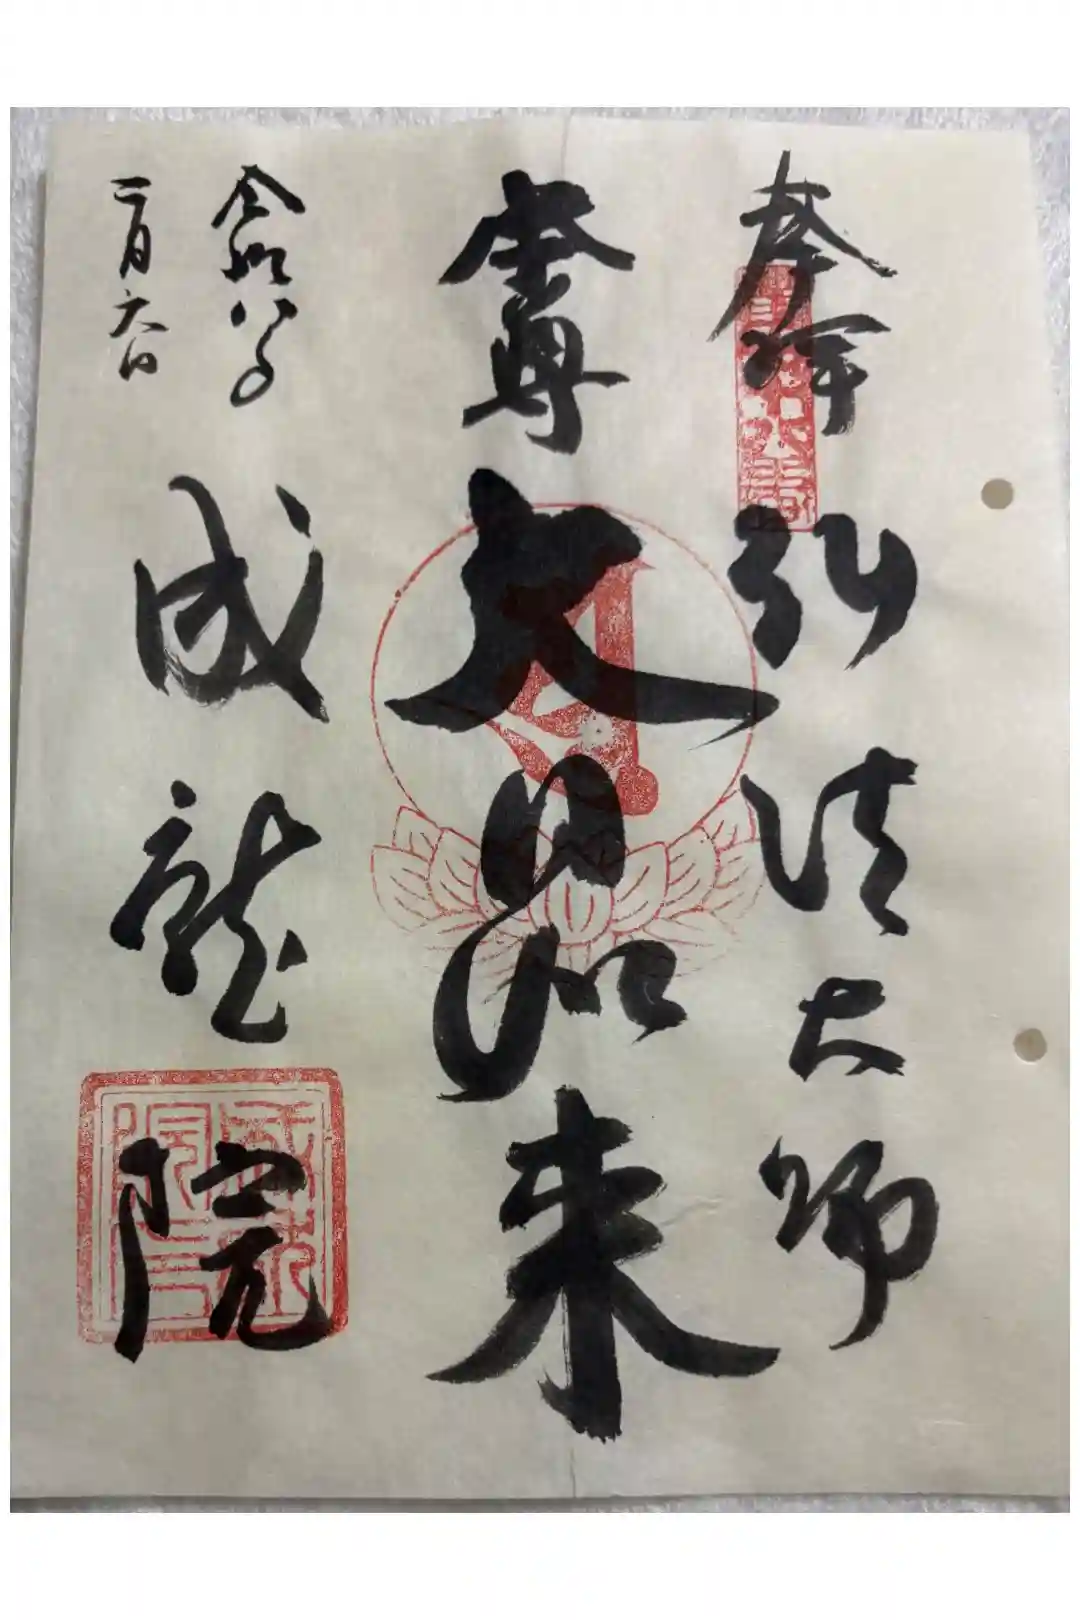 奉拝
弘法大師
本尊
大日如来
令和八年
二月六日
成龍院